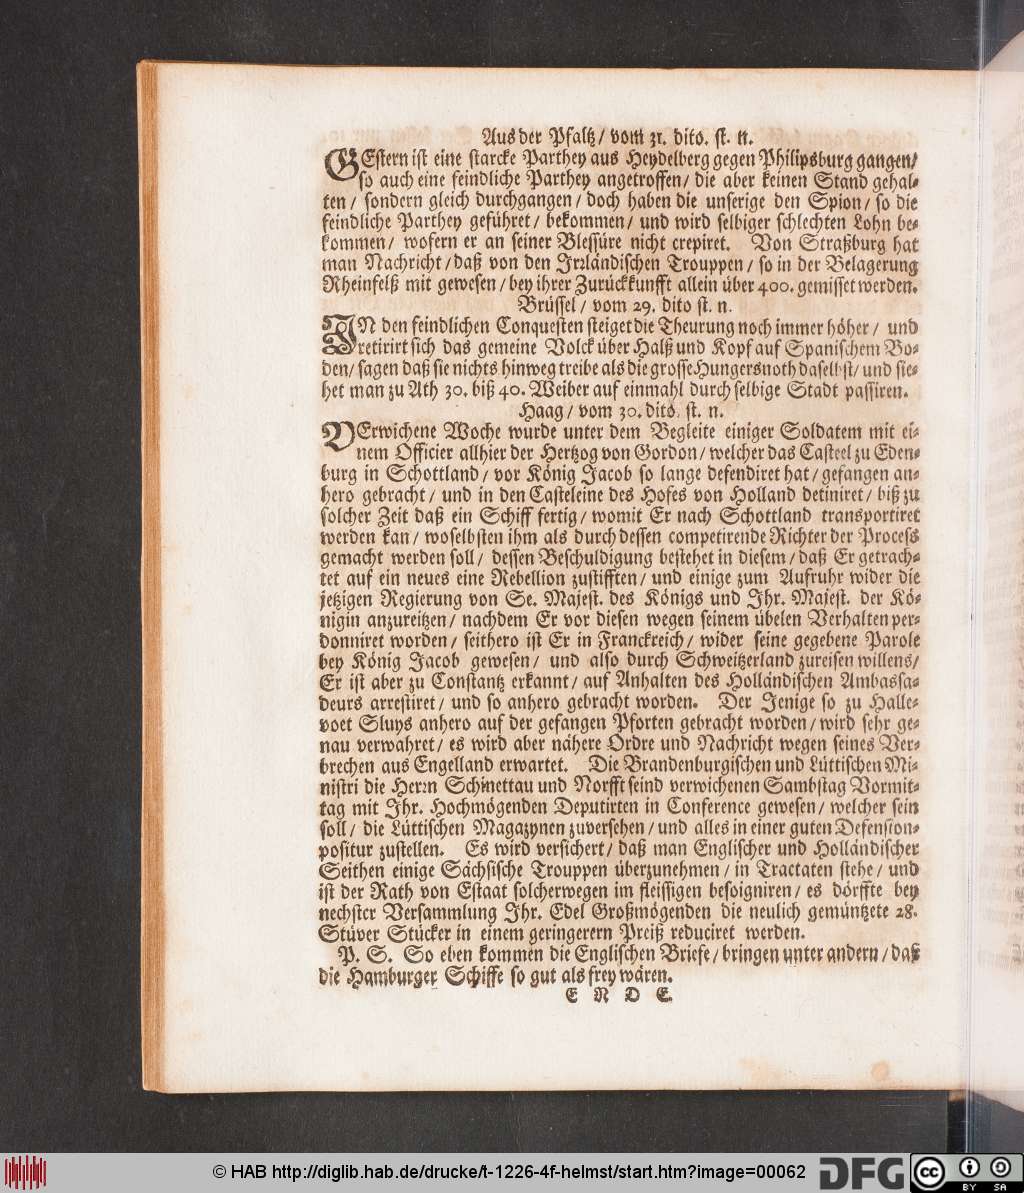 Aus der Pfaltz / vom 31. dito. st. n.
GEstern ist eine starcke Parthey aus Heydelberg gegen Philipsburg gangen/
so auch eine feindliche Parthey angetroffen / die aber keinen Stand gehal-
ten / sondern gleich durchgangen / doch haben die unserige den Spion / so die
feindliche Parthey geführet / bekommen / und wird selbiger schlechten Lohn be-
kommen / wofern er an seiner Blessüre nicht crepiret. Von Straßburg hat
man Nachricht / daß von den Irrländischen Trouppen / so in der Belagerung
Rheinfelß mit gewesen / bey ihrer Zurückkunfft allein über 400. gemisset werden.
Brüssel / vom 29. dito st. n.
IN den feindlichen Conquesten steiget die Theurung noch immer höher / und
retirirt sich das gemeine Volck über Halß und Kopf auf Spanischem Bo-
den / sagen daß sie nichts hinweg treibe als die grosse Hungersnoth daselbst / und sie-
het man zu Ath 30. biß 40. Weiber auf einmahl durch selbige Stadt passiren.
Haag / vom 30. dito. st. n.
VErwichene Woche wurde unter dem Begleite einiger Soldatem mit ei-
nem Officier allhier der Hertzog von Gordon / welcher das Casteel zu Eden-
burg in Schottland / vor König Jacob so lange defendiret hat / gefangen an-
hero gebracht / und in den Casteleine des Hofes von Holland detiniret / biß zu
solcher Zeit daß ein Schiff fertig / womit Er nach Schottland transportiret
werden kan / woselbsten ihm als durch dessen competirende Richter der Process
gemacht werden soll / dessen Beschuldigung bestehet in diesem / daß Er getrach-
tet auf ein neues eine Rebellion zustifften / und einige zum Aufruhr wider die
jetzigen Regierung von Se. Majest. des Königs und Ihr. Majest. der Kö-
nigin anzureitzen / nachdem Er vor diesen wegen seinem übelen Verhalten per-
donniret worden / seithero ist Er in Franckreich / wider seine gegebene Parole
bey König Jacob gewesen / und also durch Schweitzerland zureisen willens/
Er ist aber zu Constantz erkannt / auf Anhalten des Holländischen Ambassa-
deurs arrestiret / und so anhero gebracht worden. Der Jenige so zu Halle-
voet Sluys anhero auf der gefangen Pforten gebracht worden / wird sehr ge-
nau verwahret / es wird aber nähere Ordre und Nachricht wegen seines Ver-
brechen aus Engelland erwartet. Die Brandenburgischen und Lüttischen Mi-
nistri die Herrn Schmettau und Norfft seind verwichenen Sambstag Vormit-
tag mit Ihr. Hochmögenden Deputirten in Conference gewesen / welcher sein
soll / die Lüttischen Magazynen zuversehen / und alles in einer guten Defension-
positur zustellen. Es wird versichert / daß man Englischer und Holländischer
Seithen einige Sächsische Trouppen überzunehmen / in Tractaten stehe / und
ist der Rath von Estaat solcherwegen im fleissigen besoigniren / es dörffte bey
nechster Versammlung Ihr. Edel Großmögenden die neulich gemüntzete 28.
Stüver Stücker in einem geringerern Preiß reduciret werden.
P. S. So eben kommen die Englischen Briefe / bringen unter andern / daß
die Hamburger Schiffe so gut als frey wären.
E N D E.
© HAB http://diglib.hab.de/drucke/t-1226-4f-helmst/start.htm?image=00062 DFG cc BY SA